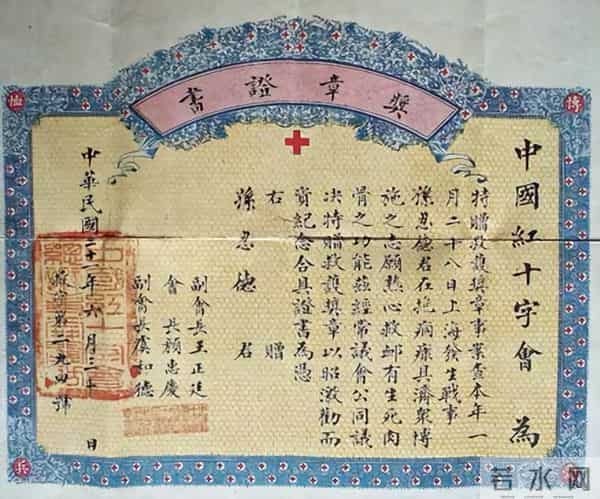 獎章證書
博
恤
中國紅十字會為
特贈救護獎章事案查本年一
月二十八日上海發生戰事
孫忍德君在抱痌瘝具濟眾博
施之志願熱心救卹有生死肉
骨之功能茲經常議會公同議
決特贈救護獎章以昭激勸而
資紀念合具證書為憑
右贈
孫忍德君
副會長王正廷
會長顏惠慶
副會長虞和德
中華民國二十一年六月日
字第二九四號
兵
若水网